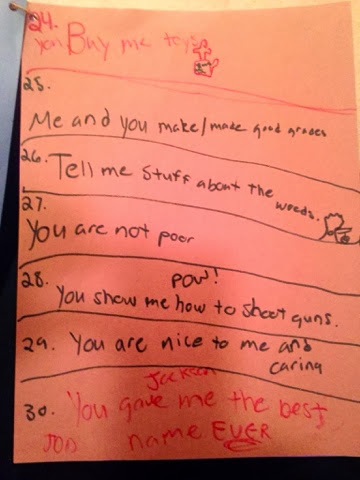 24.
you Buy me toys
25.
Me and you make/made good grades
26. Tell me stuff about the
woods.
27.
You are not poor
28. POW!
You show me how to shoot guns.
29. You are nice to me and
caring
Jackson
30. You gave me the best
JOD name EVER